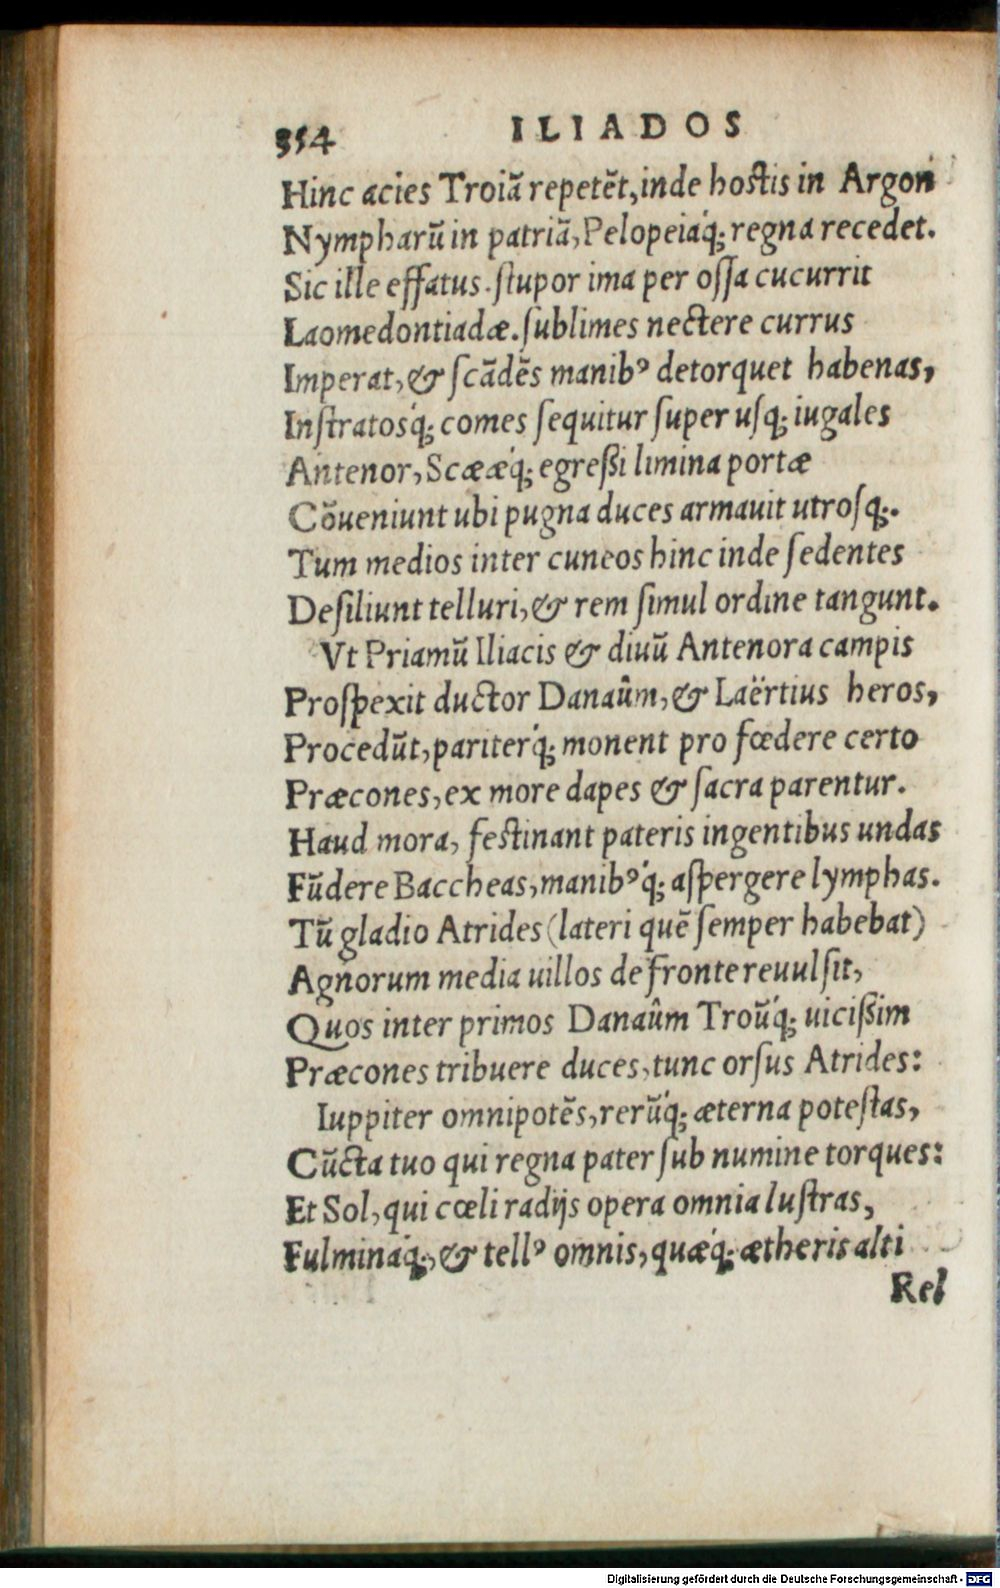 354 ILIADOS
Hinc acies Troiā repetēt, inde hostis in Argon
Nympharū in patriā, Pelopeiáq; regna recedet.
Sic ille effatus. stupor ima per ossa cucurrit
Laomedontiadæ. sublimes nectere currus
Imperat, & scādēs manibꝰ detorquet habenas,
Instratosq́; comes sequitur super usq; iugales
Antenor, Scææq́; egreßi limina portæ
Cōueniunt ubi pugna duces armauit utrosq;.
Tum medios inter cuneos hinc inde sedentes
Desiliunt telluri, & rem simul ordine tangunt.
Vt Priamū Iliacis & diuū Antenora campis
Prospexit ductor Danaûm, & Laërtius heros,
Procedūt, pariterq́; monent pro fœdere certo
Præcones, ex more dapes & sacra parentur.
Haud mora, festinant pateris ingentibus undas
Fūdere Baccheas, manibꝰq́; aspergere lymphas.
Tū gladio Atrides (lateri quē semper habebat)
Agnorum media uillos de fronte reuulsit,
Quos inter primos Danaûm Troūq́; uicißim
Præcones tribuere duces, tunc orsus Atrides:
Iuppiter omnipotēs, rerūq́; æterna potestas,
Cūcta tuo qui regna pater sub numine torques:
Et Sol, qui cœli radijs opera omnia lustras,
Fulminaq́;, & tellꝰ omnis, quæq́; ætheris alti
Rel
Digitalisierung gefördert durch die Deutsche Forschungsgemeinschaft - DFG